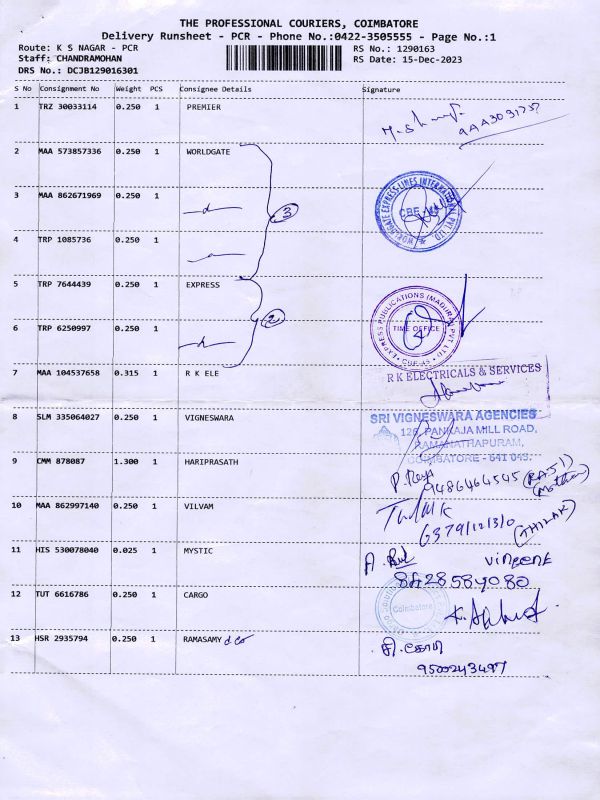 THE PROFESSIONAL COURIERS, COIMBATORE
Delivery Runsheet - PCR - Phone No.:0422-3505555 - Page No.:1
Route: K S NAGAR - PCR
RS No.: 1290163
Staff: CHANDRAMOHAN
RS Date: 15-Dec-2023
DRS No.: DCJB129016301
S No Consignment No Weight PCS Consignee Details Signature
1 TRZ 30033114 0.250 1 PREMIER
2 MAA 573857336 0.250 1 WORLDGATE
3 MAA 862671969 0.250 1
3
WORLDGATE EXPRESS-LINES INTERNATIONAL PVT LTD
4 TRP 1085736 0.250 1
5 TRP 7644439 0.250 1 EXPRESS
6 TRP 6250997 0.250 1
2
EXPRESS PUBLICATIONS (MADURAI) PVT. LTD.
TIME OFFICE
7 MAA 104537658 0.315 1 R K ELE
R K ELECTRICALS & SERVICES
8 SLM 335064027 0.250 1 VIGNESWARA
SRI VIGNESWARA AGENCIES
126, PANKAJA MILL ROAD,
RAMANATHAPURAM,
COIMBATORE - 641 045.
9 CMM 878087 1.300 1 HARIPRASATH
9486464545
10 MAA 862997140 0.250 1 VILVAM
(THILAK)
11 HIS 530078040 0.025 1 MYSTIC
vincent
12 TUT 6616786 0.250 1 CARGO
Coimbatore
13 HSR 2935794 0.250 1 RAMASAMY
9500243497